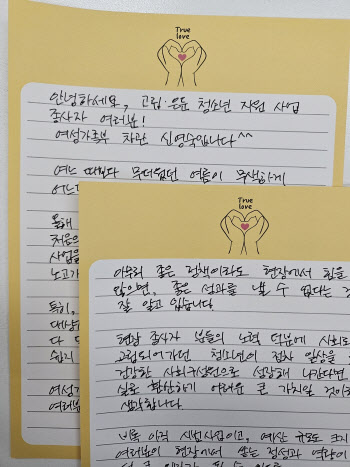 True
love
안녕하세요, 고립·은둔 청소년 지원 사업
종사자 여러분!
여성가족부 차관 신영숙입니다^^
여느 때보다 무더웠던 여름이 무색하게
어느
올해
처음으
사업을
노고가
특히,
대상
다
쉽지
여성가
여러분
True
love
아무리 좋은 정책이라도 현장에서 힘을
않으면, 좋은 성과를 낼 수 없다는 것
잘 알고 있습니다.
현장 종사자 분들의 노력 덕분에 사회로
고립되어가던 청소년이 점차 일상을
건강한 사회구성원으로 성장해 나간다면
실로 환산하기 어려운 큰 가치일 것이
생각합니다.
비록 아직 시범사업이고, 예산 규모도 크지
여러분이 현장에서 쏟는 정성과 역량이